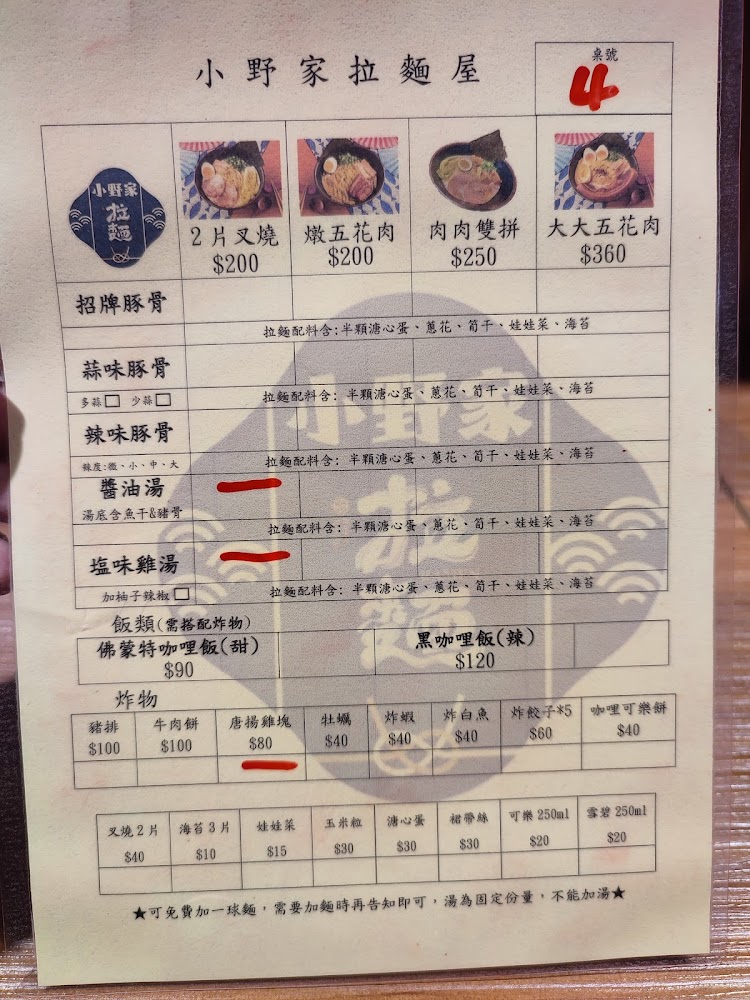 小野家拉麵屋
桌號
4
小野家
拉麵
2片叉燒
$200
燉五花肉
$200
肉肉雙拼
$250
大大五花肉
$360
招牌豚骨
拉麵配料含:半顆溏心蛋、蔥花、筍干、娃娃菜、海苔
蒜味豚骨
多蒜□ 少蒜□
拉麵配料含: 半顆溏心蛋、蔥花、筍干、娃娃菜、海苔
辣味豚骨
辣度:微、小、中、大
拉麵配料含: 半顆溏心蛋、蔥花、筍干、娃娃菜、海苔
醬油湯
湯底含魚干&豬骨
拉麵配料含: 半顆溏心蛋、蔥花、筍干、娃娃菜、海苔
塩味雞湯
加柚子辣椒□
拉麵配料含: 半顆溏心蛋、蔥花、筍干、娃娃菜、海苔
小野家
拉麵
飯類(需搭配炸物)
佛蒙特咖哩飯(甜)
$90
黑咖哩飯(辣)
$120
炸物
豬排
$100
牛肉餅
$100
唐揚雞塊
$80
牡蠣
$40
炸蝦
$40
炸白魚
$40
炸餃子*5
$60
咖哩可樂餅
$40
叉燒2片
$40
海苔3片
$10
娃娃菜
$15
玉米粒
$30
溏心蛋
$30
裙帶絲
$30
可樂 250ml
$20
雪碧 250ml
$20
★可免費加一球麵，需要加麵時再告知即可，湯為固定份量，不能加湯★